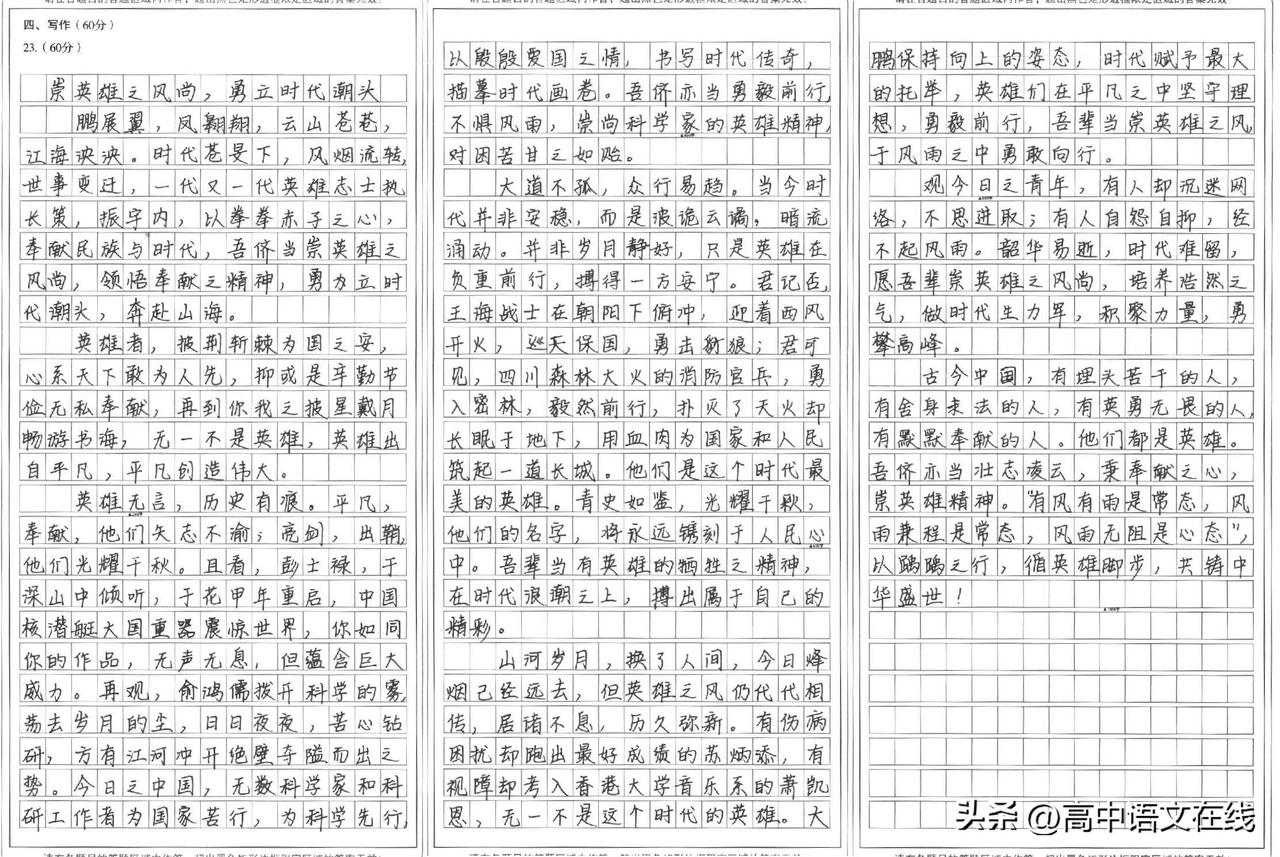 四、写作(60分)
23.(60分)
崇英雄之风尚，勇立时代潮头
鹏展翼，凤翱翔，云山苍苍，
江海泱泱。时代苍旻下，风烟流转，
世事变迁，一代又一代英雄志士执
长策，振宇内，以拳拳赤子之心，
奉献民族与时代，吾侪当崇英雄之
风尚，领悟奉献之精神，勇为立时
代潮头，奔赴山海。
英雄者，披荆斩棘为国之安，
心系天下敢为人先，抑或是辛勤节
俭无私奉献，再到你我之披星戴月
畅游书海，无一不是英雄，英雄出
自平凡，平凡创造伟大。
英雄无言，历史有痕。平凡，
奉献，他们矢志不渝；亮剑，出鞘，
他们光耀千秋。且看，彭士禄，于
深山中倾听，于花甲年重启，中国
核潜艇大国重器震惊世界，你如同
你的作品，无声无息，但蕴含巨大
威力。再观，俞鸿儒拨开科学的雾，
荡去岁月的尘，日日夜夜，苦心钻
研，方有江河冲开绝壁夺隘而出之
势。今日之中国，无数科学家和科
研工作者为国家苦行，为科学先行，
以殷殷爱国之情，书写时代传奇，
描摹时代画卷。吾侪亦当勇毅前行，
不惧风雨，崇尚科学家的英雄精神，
对困苦甘之如饴。
大道不孤，众行易趋。当今时
代并非安稳，而是波诡云谲。暗流
涌动。并非岁月静好，只是英雄在
负重前行，搏得一方安宁。君记否，
王海战士在朝阳下俯冲，迎着西风
开火，巡天保国，勇击豺狼；君可
见，四川森林大火的消防官兵，勇
入密林，毅然前行，扑灭了天火却
长眠于地下，用血肉为国家和人民
筑起一道长城。他们是这个时代最
美的英雄。青史如鉴，光耀千秋，
他们的名字，将永远镌刻于人民心
中。吾辈当有英雄的牺牲之精神，
在时代浪潮之上，搏出属于自己的
精彩。
山河岁月，换了人间，今日烽
烟已经远去，但英雄之风仍代代相
传，居诸不息，历久弥新。有伤病
困扰却跑出最好成绩的苏炳添，有
视障却考入香港大学音乐系的萧凯
恩，无一不是这个时代的英雄。大
鹏保持向上的姿态，时代赋予最大
的托举，英雄们在平凡之中坚守理
想，勇毅前行，吾辈当崇英雄之风，
于风雨之中勇敢向行。
观今日之青年，有人却沉迷网
络，不思进取；有人自怨自抑，经
不起风雨。韶华易逝，时代难留，
愿吾辈崇英雄之风尚，培养浩然之
气，做时代生力军，积聚力量，勇
攀高峰。
古今中国，有埋头苦干的人，
有舍身求法的人，有英勇无畏的人，
有默默奉献的人。他们都是英雄。
吾侪亦当壮志凌云，秉奉献之心，
崇英雄精神。“有风有雨是常态，风
雨兼程是常态，风雨无阻是心态”，
以踽踽之行，循英雄脚步，共铸中
华盛世！
头条 @高中语文在线